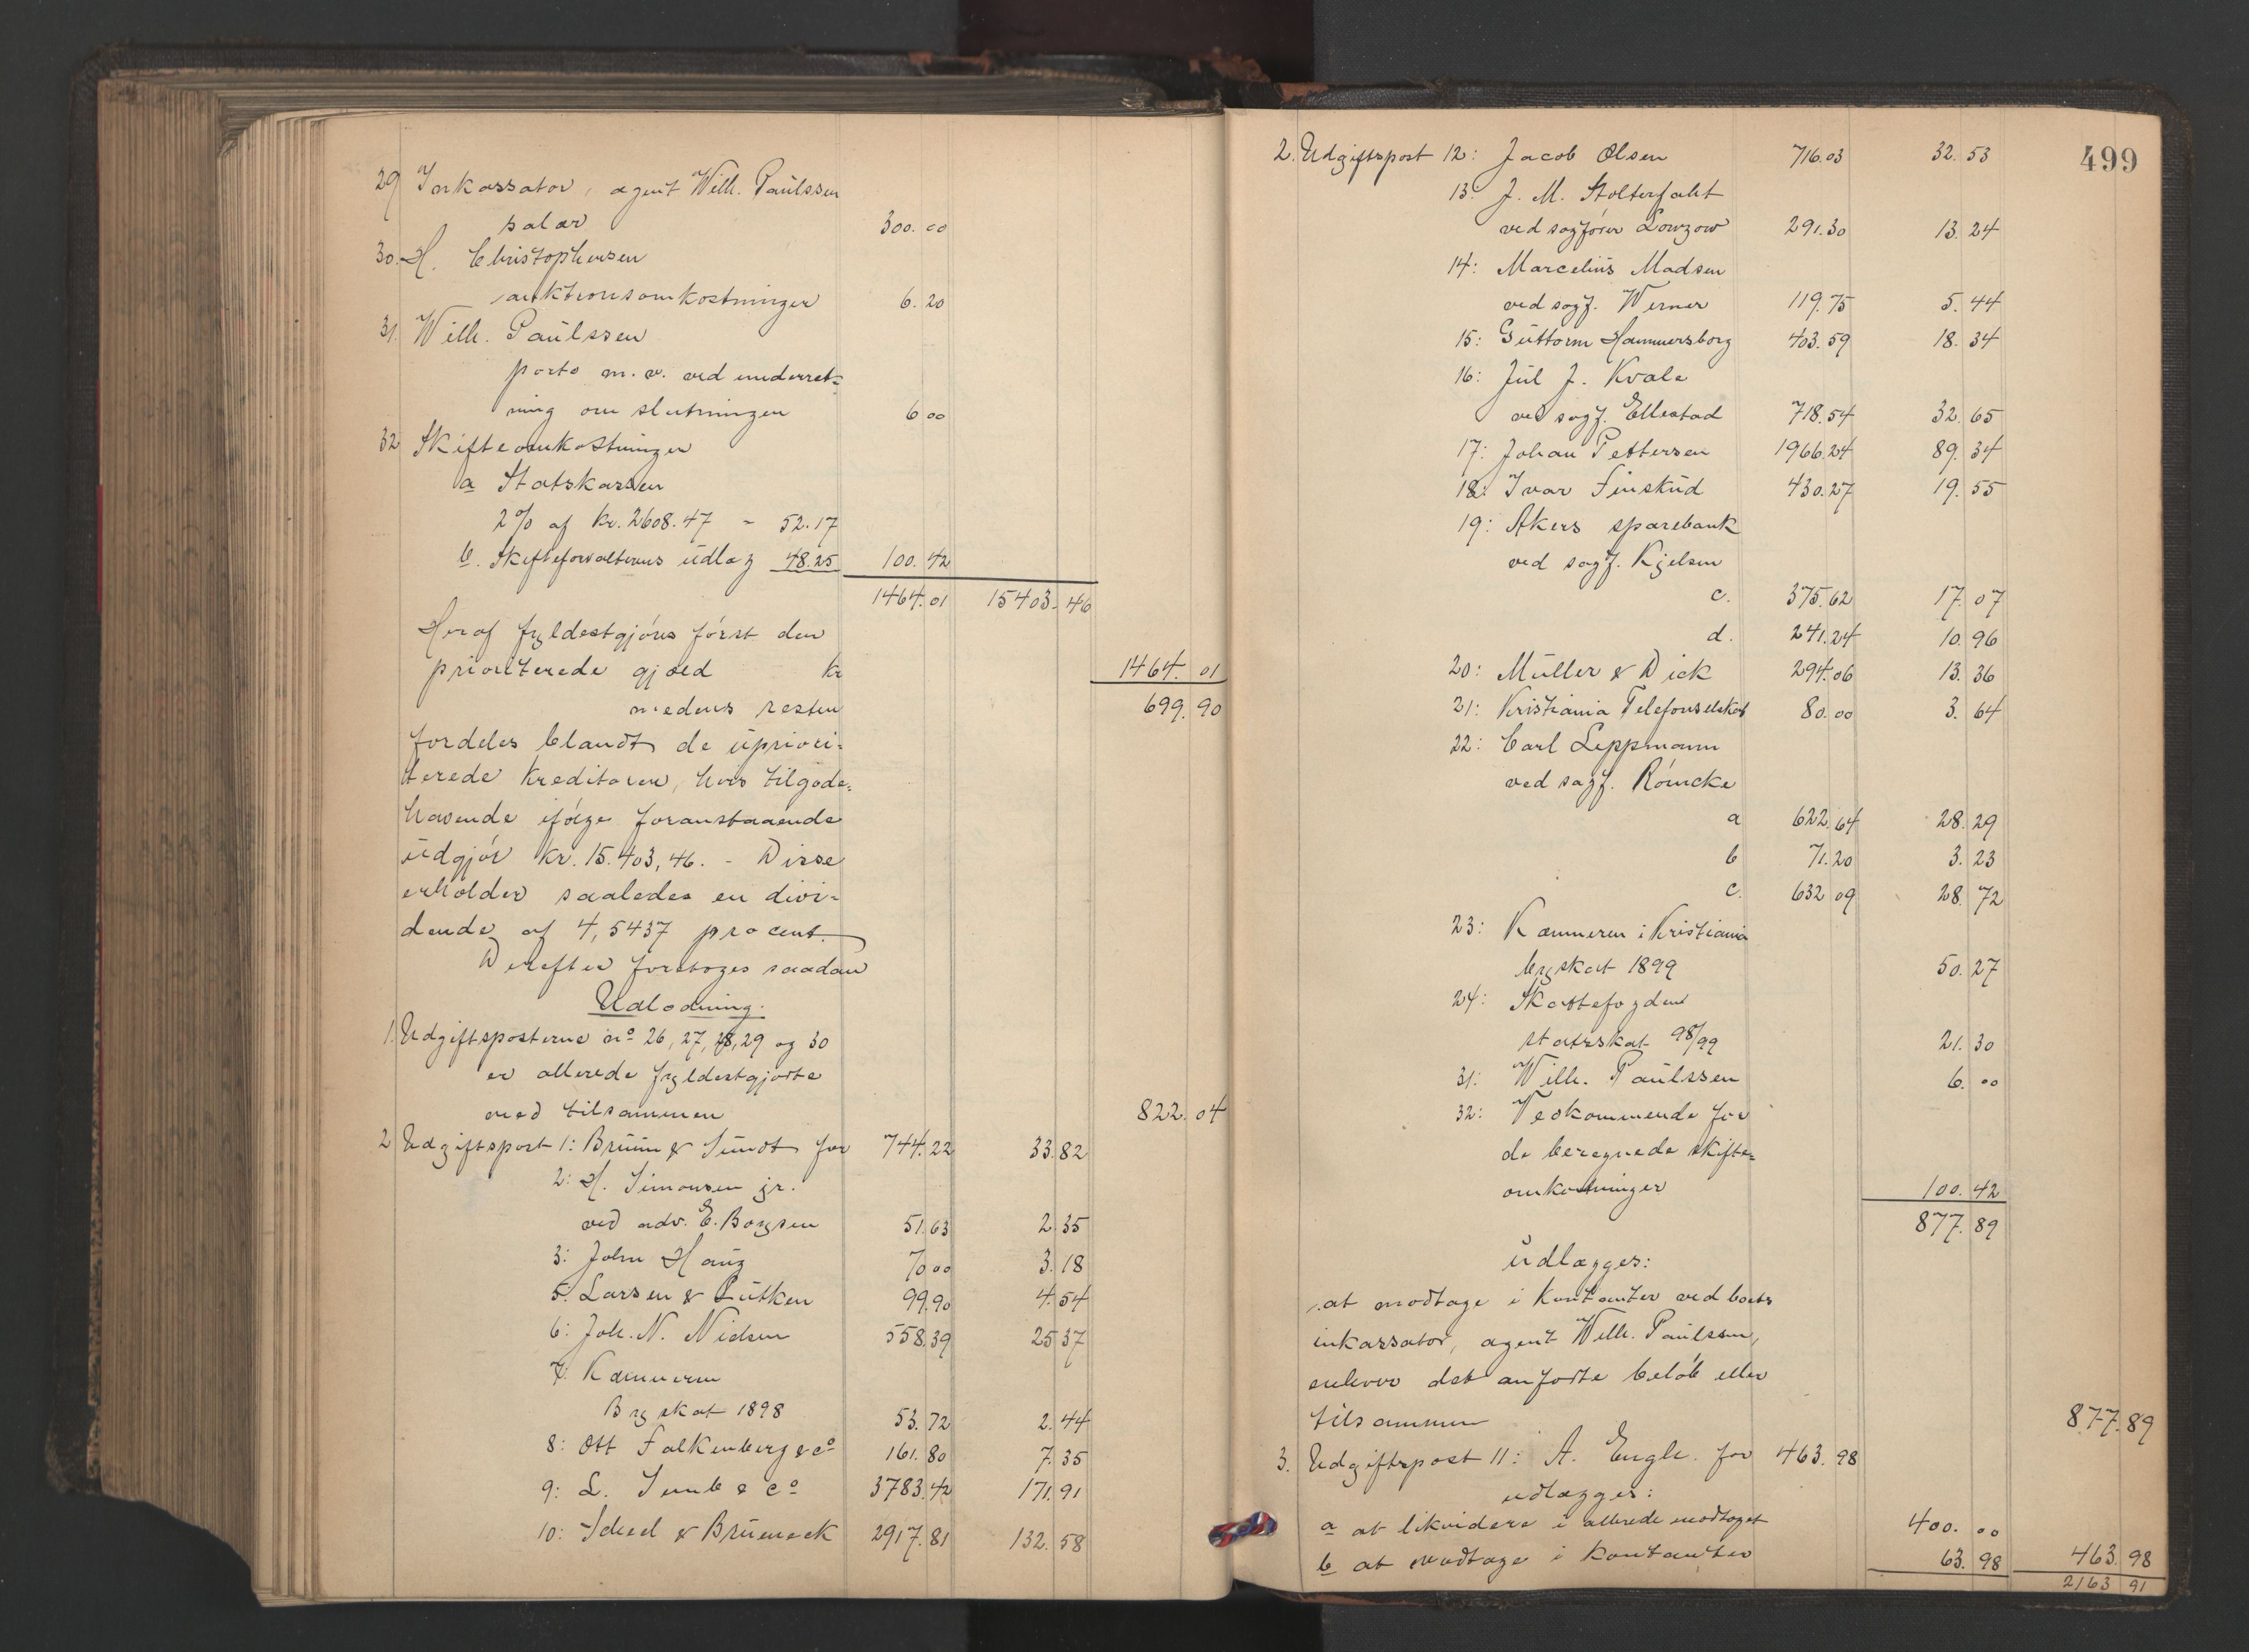 29 Inkassator, agent Wilh. Paulssen
salær 300.00
30. H. Christophersen
auktionsomkostninger 6.20
31. Wilh. Paulssen
porto m.v. ved underret-
ning om slutningen 6 00
32 Skifteomkostninger
a Statskassen
2% af kr. 2608.47 - 52.17
b. Skifteforvalterens udlæg 48.25 100.42
1464.01 15403.46
Heraf fyldestgjøres først den
prioriterede gjæld kr 1464.01
medens resten 699.90
fordeles blandt de upriori-
terede kreditorer, hvis tilgode-
havende ifølge foranstaaende
udgjør kr. 15.403,46. - Disse
erholder saaledes en divi-
dende af 4,5437 procent.
Derefter foretoges saadan
Udlodning.
1. Udgiftsposterne no 26, 27, 28, 29 og 30
er allerede fyldestgjorte
med tilsammen 822.04
2 Udgiftspost 1: Bruun & Sundt for 744.22 33.82
2: H. Simonsen jr.
ved adv. E. Borgsen 51.63 2.35
3: John Haug 70 00 3.18
5. Larsen & Lütken 99.90 4.54
6: Joh. N. Nielsen 558.39 25 37
7: Kæmneren
Byskat 1898 53.72 2.44
8: Ott Falkenberg & co 161.80 7.35
9: L. Sunb & Co 3783.42 171.91
10: Scheel & Brüneck 2917.81 132.58
499
2. Udgiftspost 12: Jacob Olsen 716.03 32.53
13: J. M. Stolterfoht
ved sagfører Lowzow 291.30 13.24
14: Marcelius Madsen
ved sagf. Werner 119.75 5.44
15: Guttorm Hammersborg 403.59 18.34
16: Jul J. Kvale
ved sagf. Ellestad 718.54 32.65
17: Johan Pettersen 1966.24 89.34
18: Ivar Finskud 430.27 19.55
19: Akers sparebank
ved sagf. Kjelsen
c. 375.62 17.07
d. 241.24 10.96
20: Müller & Dick 294.06 13.36
21: Kristiania Telefonselskab 80.00 3.64
22: Carl Leppmann
ved sagf. Rømcke
a 622.64 28.29
b 71.20 3.23
c. 632 09 28.72
23: Kæmneren i Kristiania
byskat 1899 50.27
24: Skattefogden
statsskat 98/99 21.30
31: Wilh. Paulssen 6.00
32: Vedkommende for
de beregnede skifte-
omkostninger 100.42
877.89
udlægges:
at modtage i kontanter ved boets
inkassator, agent Wilh. Paulssen,
enhver det anførte beløb eller
tilsammen 877.89
3. Udgiftspost 11: A. Engh. for 463.98
udlægges:
a at likvidere i allerede modtaget 400.00
b at modtage i kontanter 63.98 463.98
2163 91